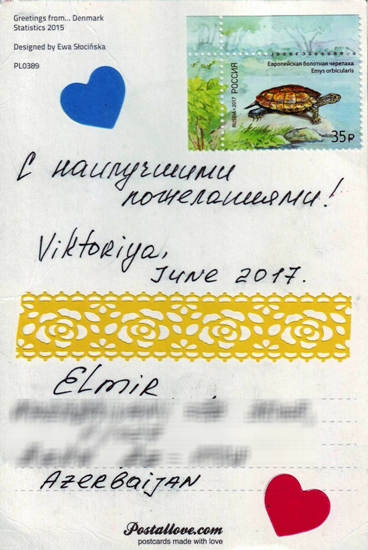 Greetings from... Denmark
Statistics 2015
Designed by Ewa Słocińska
PL0389
Европейская болотная черепаха
Emys orbicularis
RUSSIA • 2017 РОССИЯ
35₽
С наилучшими
пожеланиями!
Viktoriya,
June 2017.
ELmir
AzerbaijAN
Postallove.com
postcards made with love